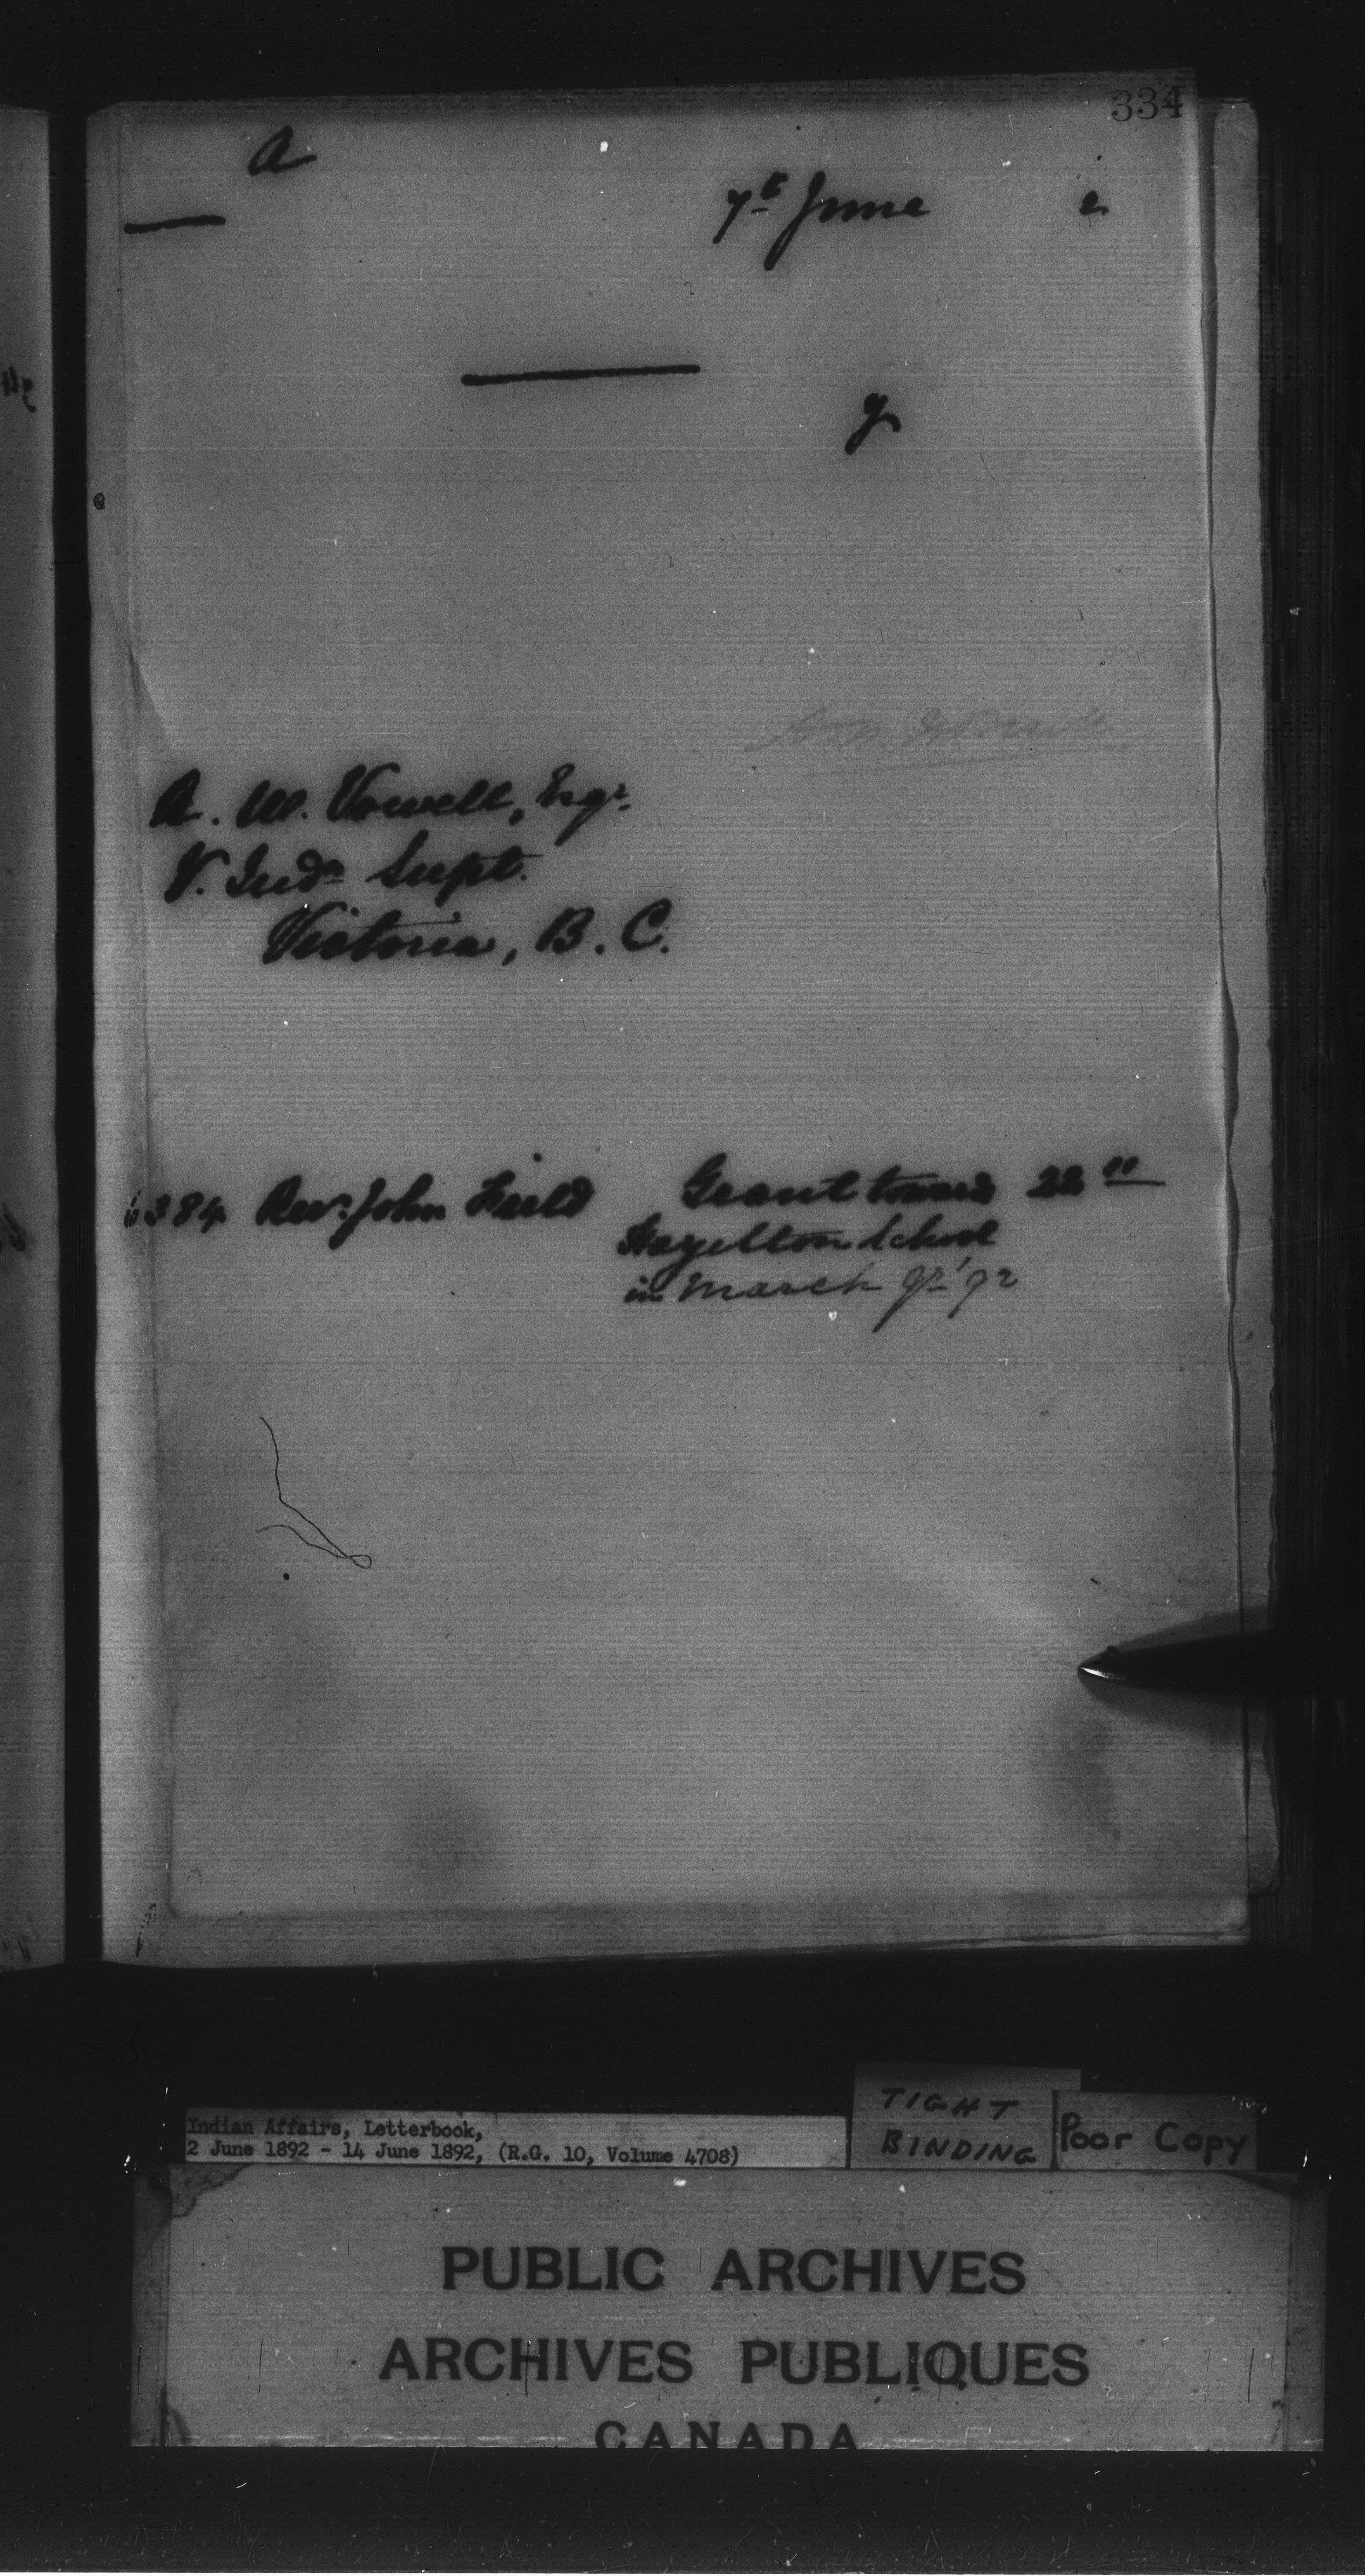 334
A
7th June 2
y
A. W. Vowell, Esqr.
V. Indn Supt.
Victoria, B. C.
384 Revd John Field Grant toward 22 "
Hazelton School
in March qr '92
Indian Affairs, Letterbook,
2 June 1892 - 14 June 1892, (R.G. 10, Volume 4708)
TIGHT
BINDING
Poor Copy
PUBLIC ARCHIVES
ARCHIVES PUBLIQUES
CANADA